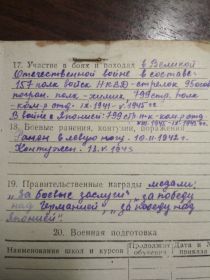 17. Участие в боях и походах в Великой
Отечественной войне в составе:
157 полк войск НКВД - стрелок, 95 особ
погран. полк - химик, 799 стр. полк -
ком-р отд. IX.1941 - V.1945 гг.
В войне с Японией: 799 сп - ком-р отд.
VIII.1945 - IX.1945 гг.
18. Боевые ранения, контузии, поражения
Ранен в левую ногу. 10.11.1942 г.
Контужен: 13.V.1943
19. Правительственные награды медали:
"За боевые заслуги", "за победу
над Германией", "за победу над
Японией".
20. Военная подготовка
Наименование школ и курсов
Продолж
обучения
Дата и
прика